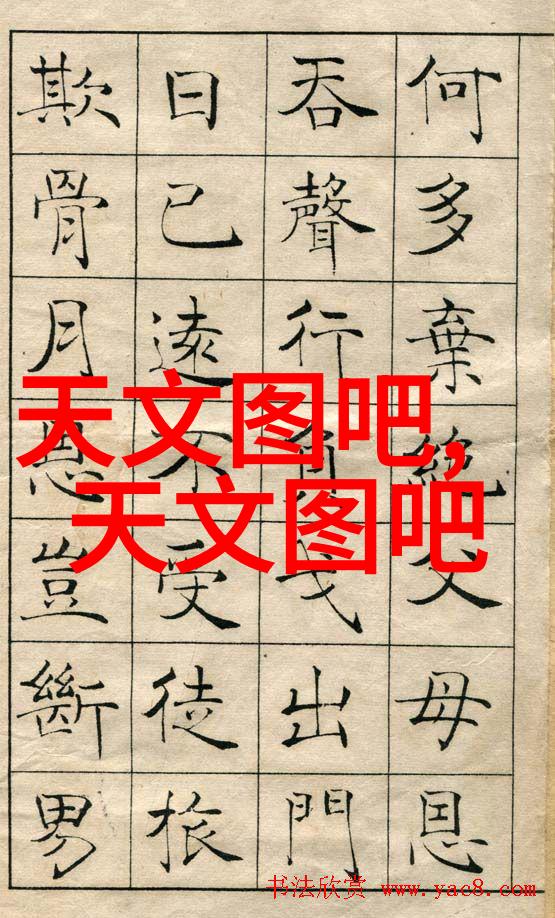 何多棄絶父母恩
吞聲行負戈出門
日已遠不受徒旅
欺骨月恩豈斷男
天文图吧，
天文图吧
书法欣赏 www.yac8.com